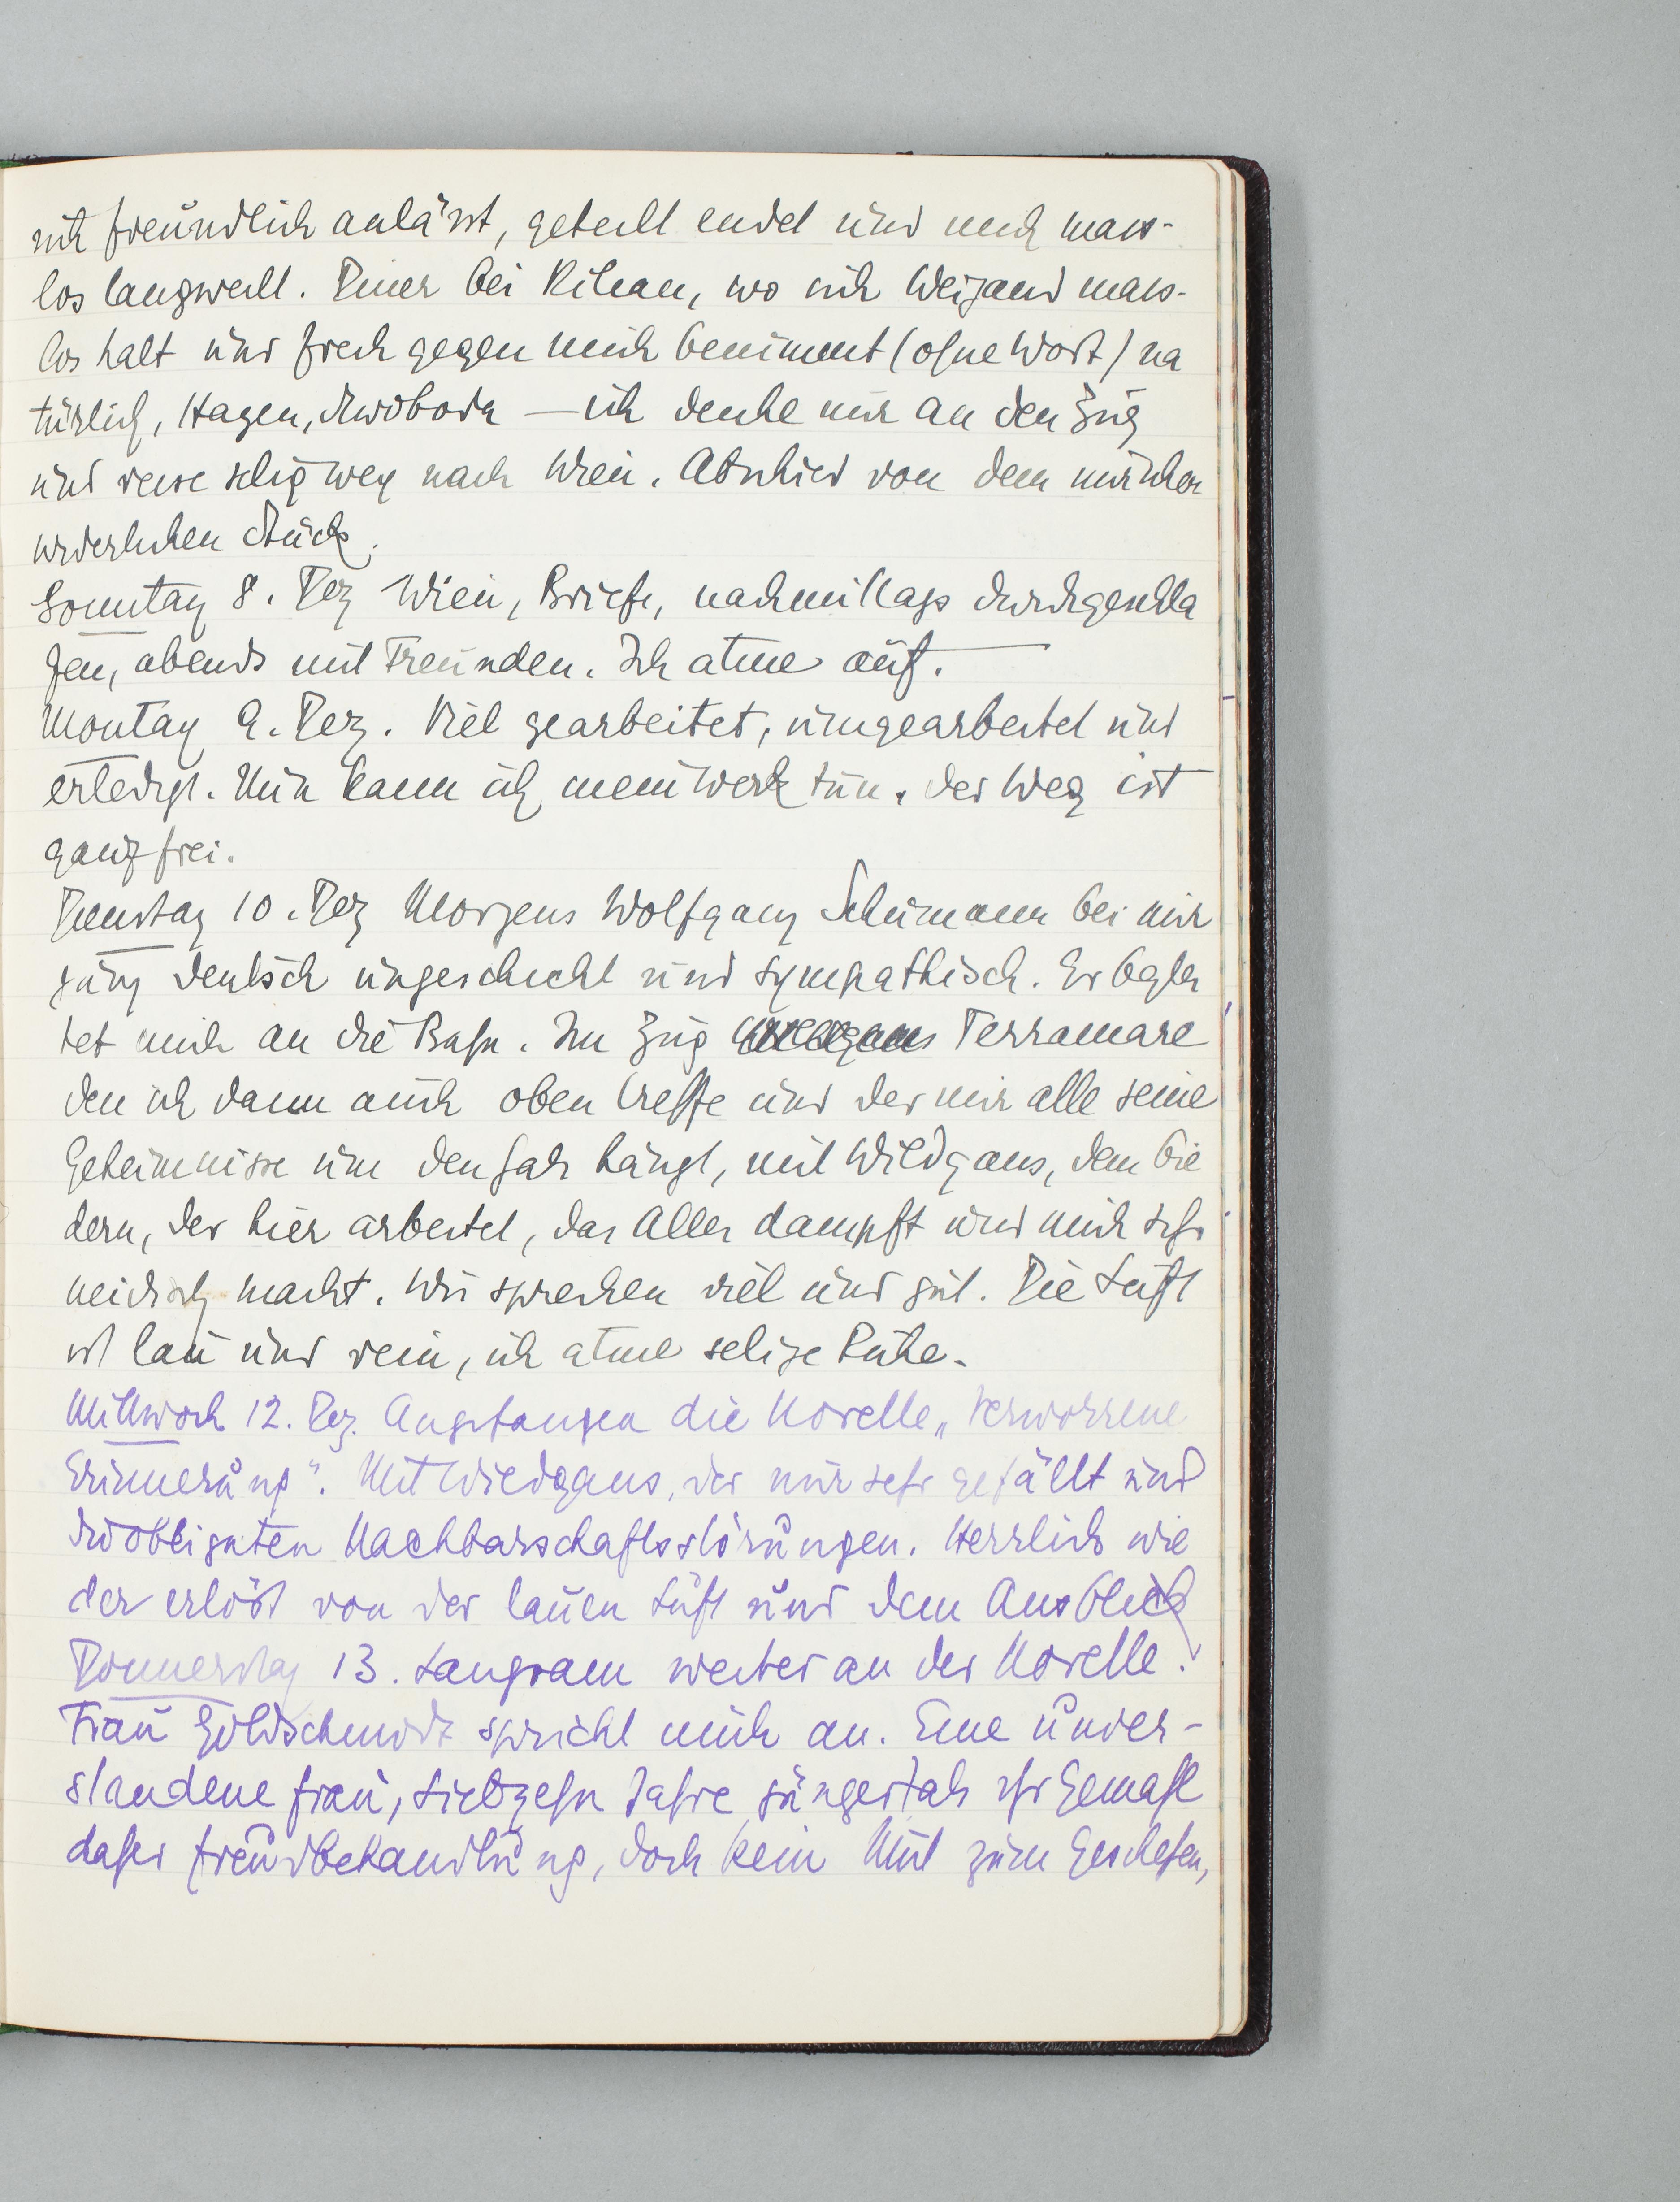 sich freundlich anlässt, geteilt endet und mich mass-
los langweilt. Diner bei Kilian, wo sich Weigand mass-
los kalt und frech gegen mich benimmt (ohne Wort) na
türlich, Hagen, Swoboda — ich denke nur an den Zug
und reise selig weg nach Wien. Abschied von dem
widerlichen Stück.
Sonntag 8. Dez Wien, Briefe, nachmittags durchgeschla
fen, abends mit Freunden. Ich atme auf.
Montag 9. Dez. Viel gearbeitet, umgearbeitet und
erledigt. Nun kann ich mein Werk tun. Der Weg ist
ganz frei.
Dienstag 10. Dez Morgens Wolfgang Schumann bei mir
jung deutsch ungeschickt und sympathisch. Er beglei
tet mich an die Bahn. Im Zug Terramare
den ich dann auch oben treffe und der mir alle seine
Geheimnisse um den Hals hängt, mit Wildgans, dem bie
dern, der hier arbeitet, das Alles dampft und mich sehr
neidisch macht. Wir sprechen viel und gut. Die Luft
ist lau und rein, ich atme selige Ruhe.
Mittwoch 12. Dez. Angefangen die Novelle „Verworrene
Erinnerung“. Mit Wildgans, der mir sehr gefällt und
die obligaten Nachbarschaftsstörungen. Herrlich wie
der erlöst von der lauen Luft und dem Ausblick
Donnerstag 13. Langsam weiter an der Novelle.
Frau Goldschmidt spricht mich an. Eine unver-
standene Frau, siebzehn Jahre jünger als ihr Gemahl
daher Freudbehandlung, doch kein Mut zum Geschehen,